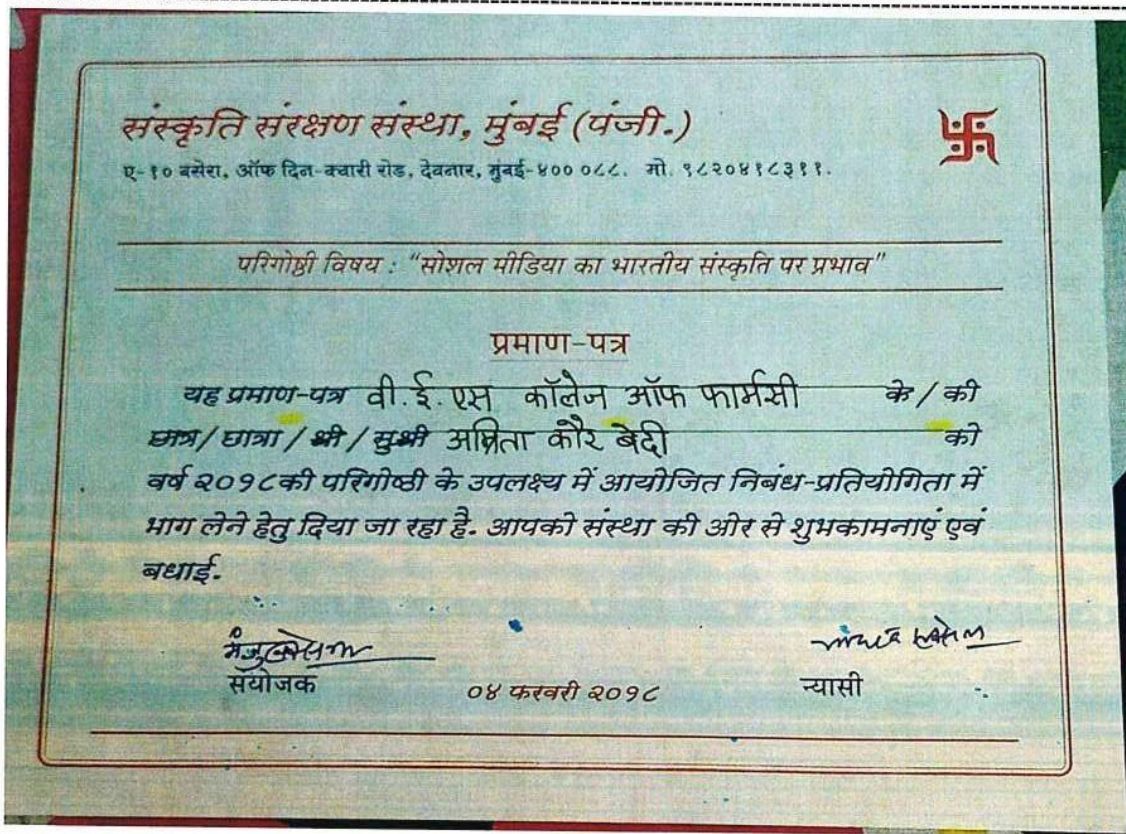 संस्कृति संरक्षण संस्था, मुंबई (पंजी.)
ए-१० बसेरा, ऑफ दिन-क्वारी रोड, देवनार, मुंबई-४०० ०८८. मो. ९८२०४१८३११.
परिगोष्ठी विषय : "सोशल मीडिया का भारतीय संस्कृति पर प्रभाव"
प्रमाण-पत्र
यह प्रमाण-पत्र वी.ई.एस कॉलेज ऑफ फार्मसी के / की
छात्र / छात्रा / श्री / सुश्री कौर बेदी को
वर्ष २०१८ की परिगोष्ठी के उपलक्ष्य में आयोजित निबंध-प्रतियोगिता में
भाग लेने हेतु दिया जा रहा है. आपको संस्था की ओर से शुभकामनाएं एवं
बधाई.
संयोजक
०४ फरवरी २०१८
न्यासी